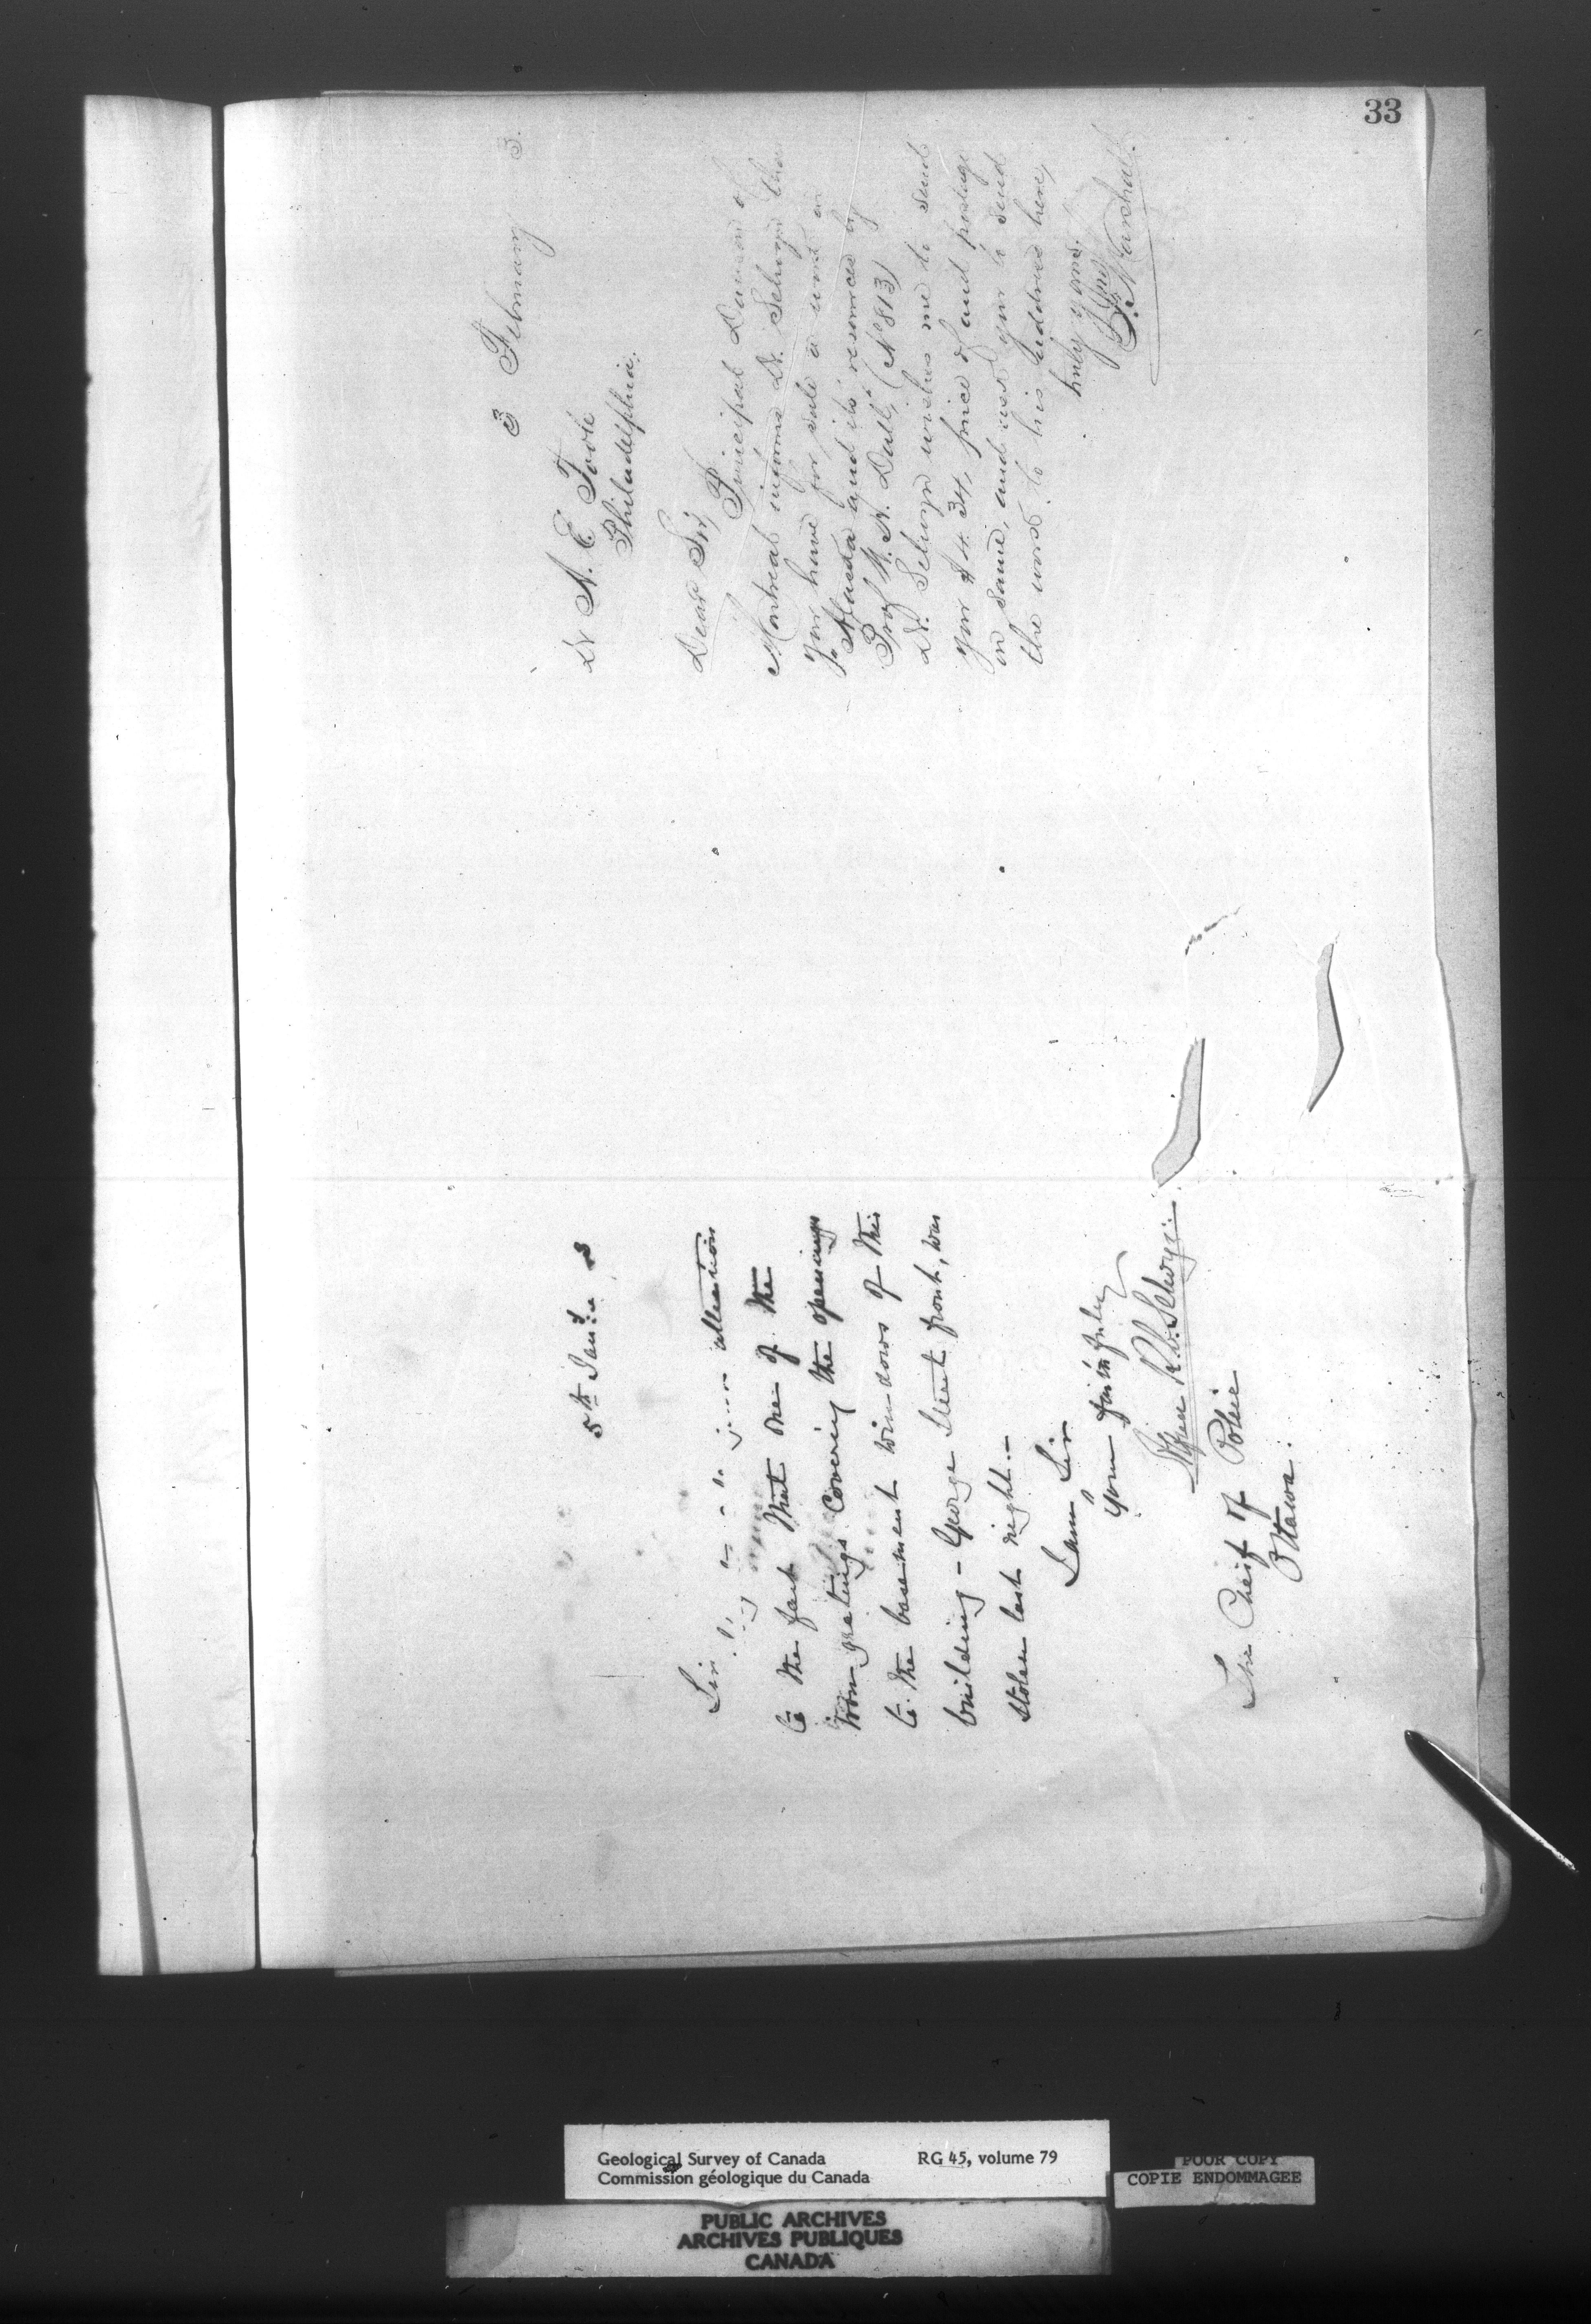 33
5th Jany 3
Sir,
attention
to the fact that one of the
iron gratings covering the openings
to the basement windows of this
building - George Street front, was
stolen last night. -
I am, Sir
Your faithfully
Alfred R.C. Selwyn.
The Cheif of Police
Ottawa.
3 February 3.
Dr A. E. Foote
Philadelphia.
Dear Sir,
Principal Dawson of
Montreal informs Dr. Selwyn that
you have for sale a work on
"Alaska and its resources by
Prof W. H. Dall," (No 813)
Dr. Selwyn wishes me to send
you $4.34, price of and postage
on same, and ask you to send
the work to his address here,
truly yours,
Marshall.
Geological Survey of Canada RG 45, volume 79
Commission géologique du Canada
POOR COPY
COPIE ENDOMMAGEE
PUBLIC ARCHIVES
ARCHIVES PUBLIQUES
CANADA